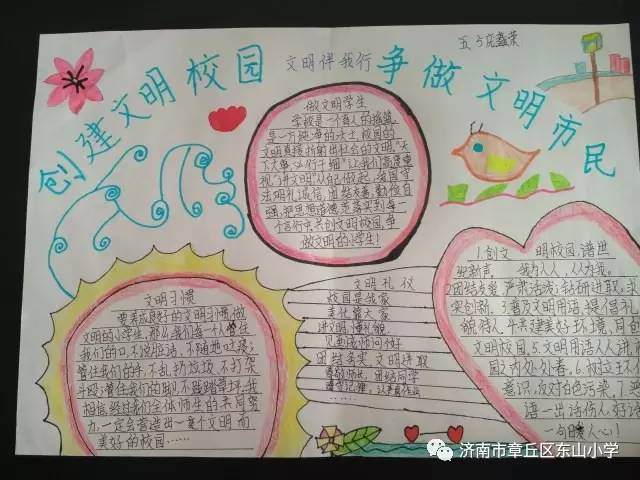 创建文明校园
文明伴我行
争做文明市民
做文明学生
学校是一个育人的摇篮,
是一方纯净的沃土,校园的
文明直接折射出社会的文明,"天
视"讲文明"从我做起,爱国守
法,明礼诚信,团结友善,勤俭自
强,把思想道德
个言行去共创文明校园,争
做文明的小学生!
文明习惯
要养成良好的文明习惯,做
文明的小学生,那么我们每一个人管住
我们的口,不说脏话,不随地吐痰;
管住我们的手,不乱扔垃圾,不打架
斗殴;管住我们的脚,不践踏草坪,我
相信,经过我们全体师生的共同努
力,一定会营造出一个文明而
美好的校园……
文明礼仪
校园是我家
美化靠大家
讲文明懂礼貌
见面敬师问好
团结务实 文明进取
尊敬师长,团结同学
1.创文明校园,谱世
纪新声。我为人人,人人为我。
2.团结友爱,严肃活泼;钻研进取,求
实创新。3.普及文明用语,提倡礼
貌待人。4.共建美好环境,同育
文明校园。5.文明用语人人讲,
园内处处春。6.树立环
意识,反对白色污染。7.
语一出话伤人,好话
一句暖人心!
济南市章丘区东山小学